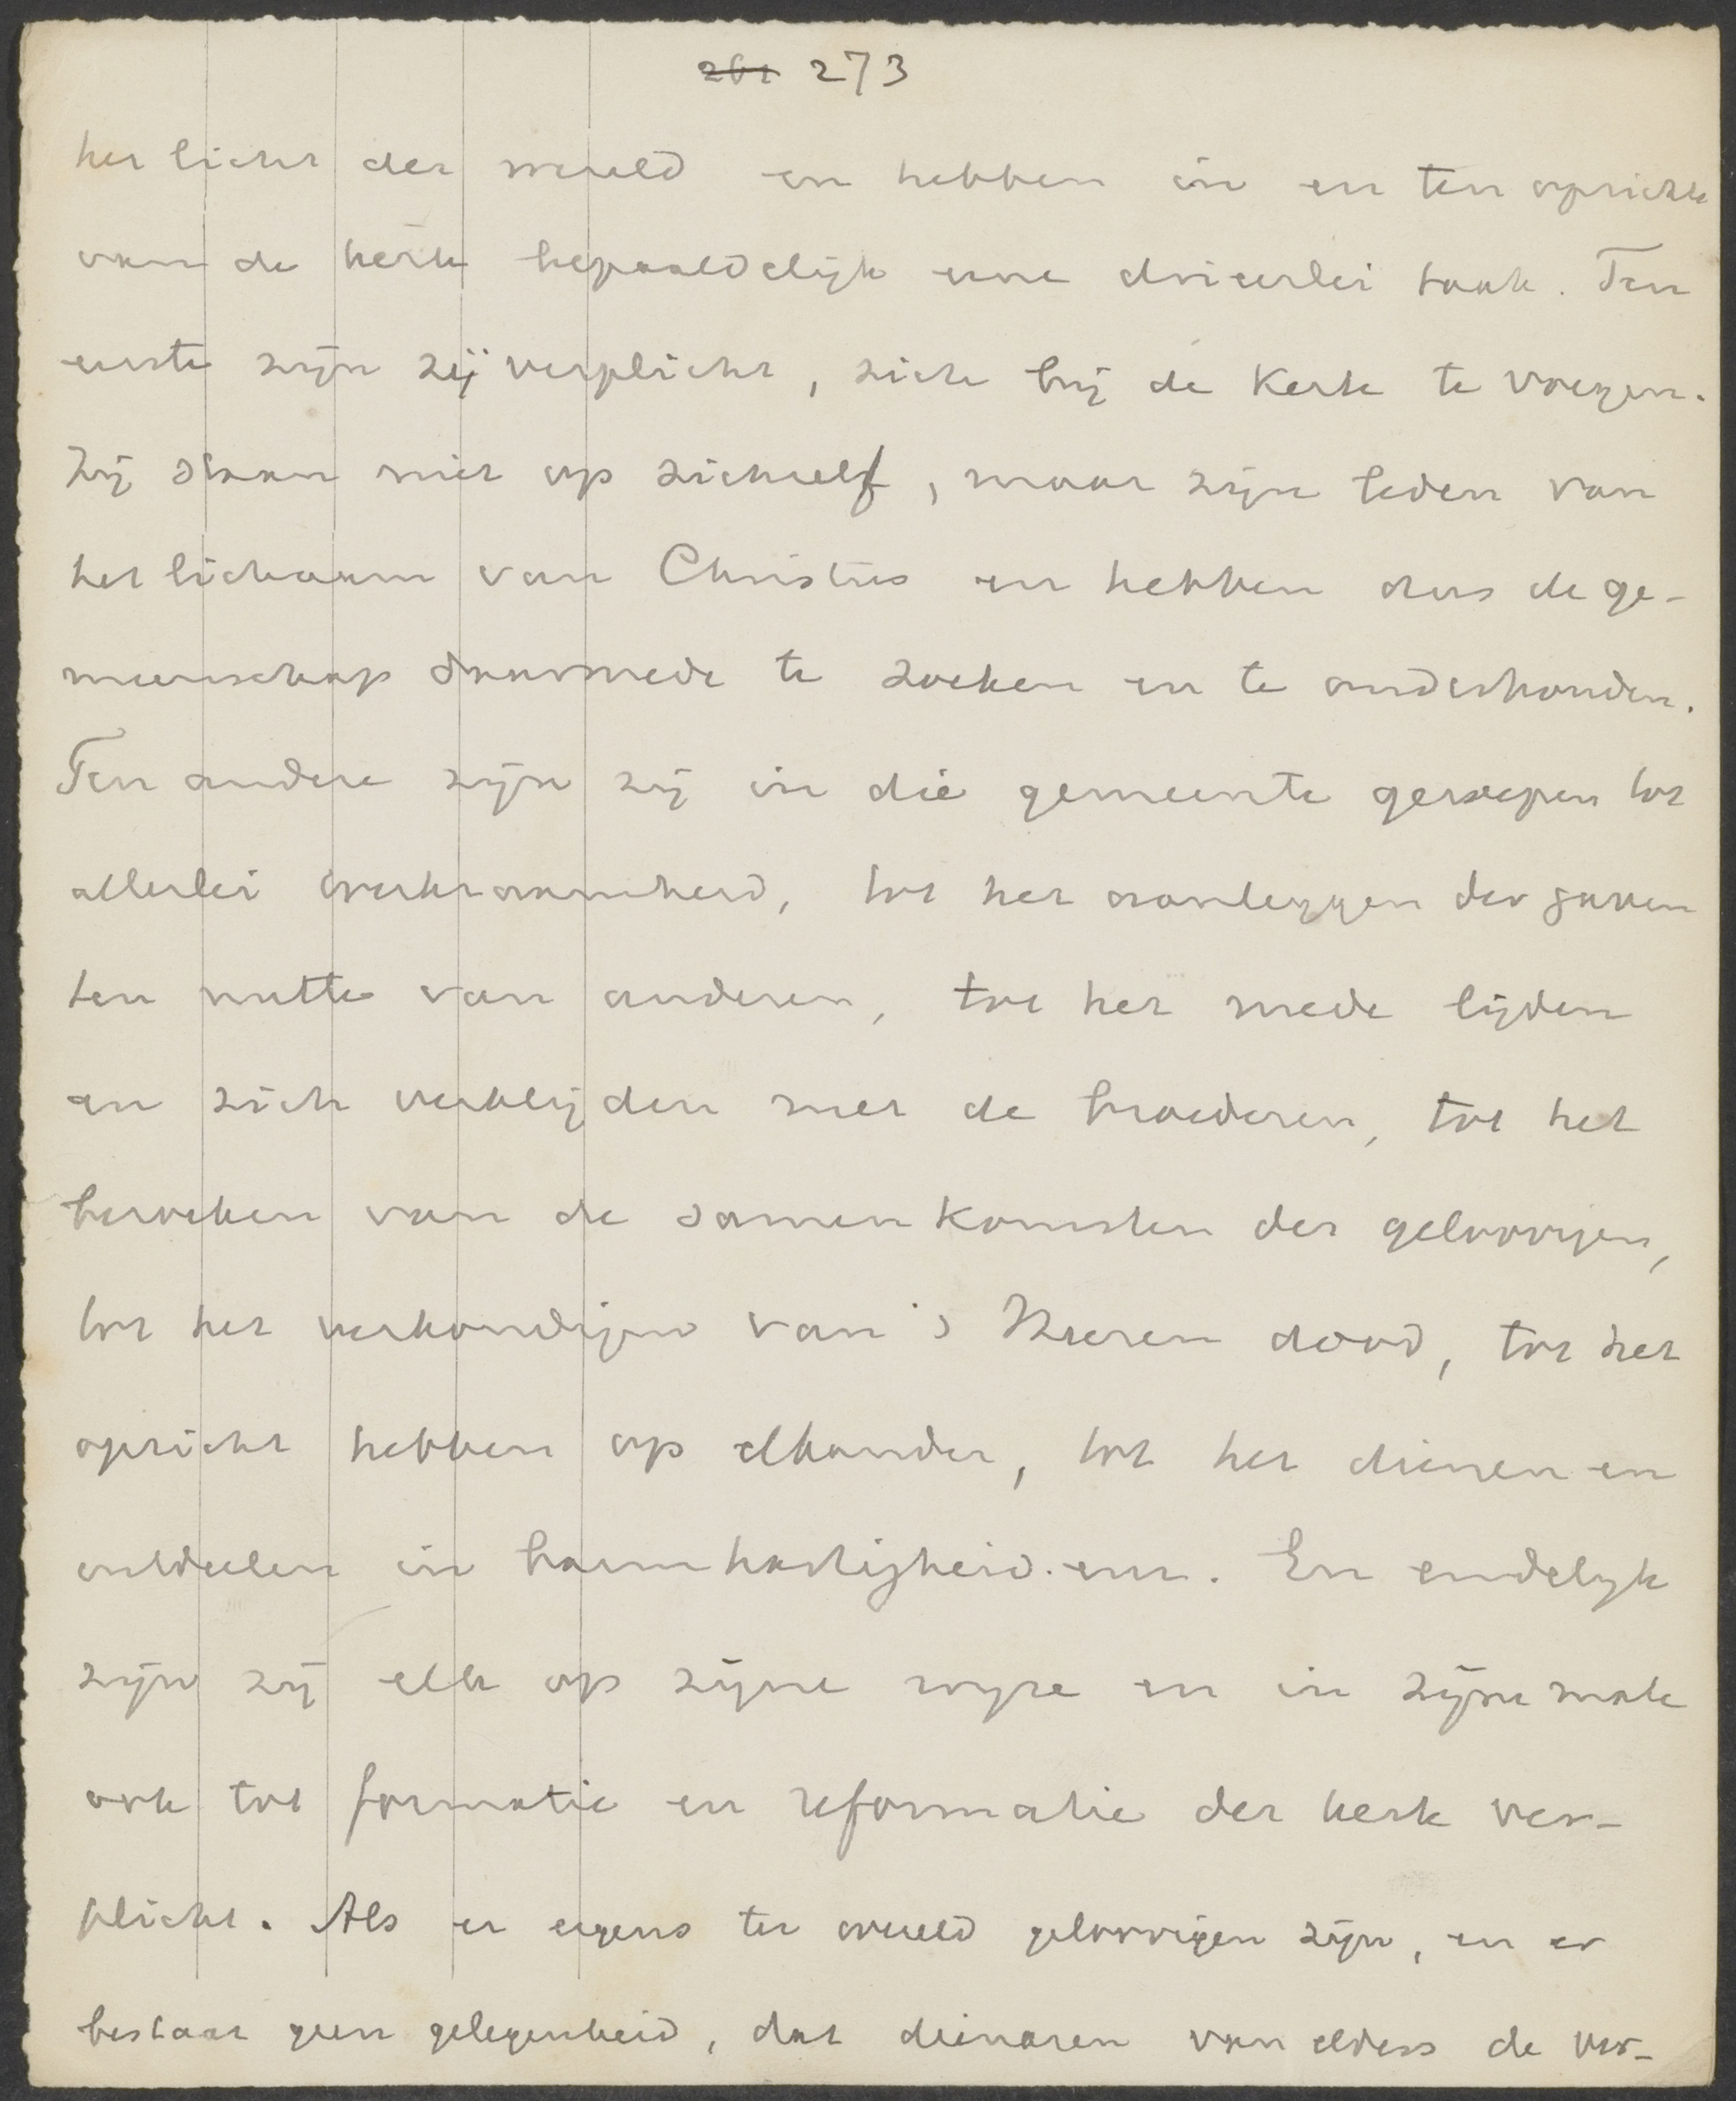 261 273
het licht der wereld en hebben in en ten opzichte
van de kerk bepaaldelijk eene drieërlei taak. Ten
eerste zijn zij verplicht, zich bij de Kerk te voegen.
Zij staan niet op zichzelf, maar zijn leden van
het lichaam van Christus en hebben dus de ge-
meenschap daarmede te zoeken en te onderhouden.
Ten andere zijn zij in die gemeente geroepen tot
allerlei werkzaamheid, tot het aanleggen der gaven
ten nutte van anderen, tot het mede lijden
en zich verblijden met de broederen, tot het
bezoeken van de samenkomsten der geloovigen,
tot het verkondigen van 's Heeren dood, tot het
opzicht hebben op elkander, tot het dienen en
uitdeelen in barmhartigheid. enz. En eindelijk
zijn zij elk op zijne wijze en in zijne mate
ook tot formatie en reformatie der kerk ver-
plicht. Als er ergens ter wereld geloovigen zijn, en er
bestaat geen gelegenheid, dat dienaren van elders de ver-